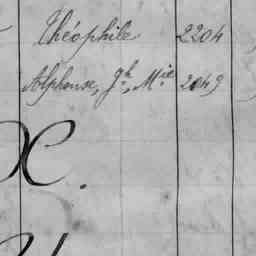 Théophile 2204
Alphonse, Jh, Mie 2049
X.